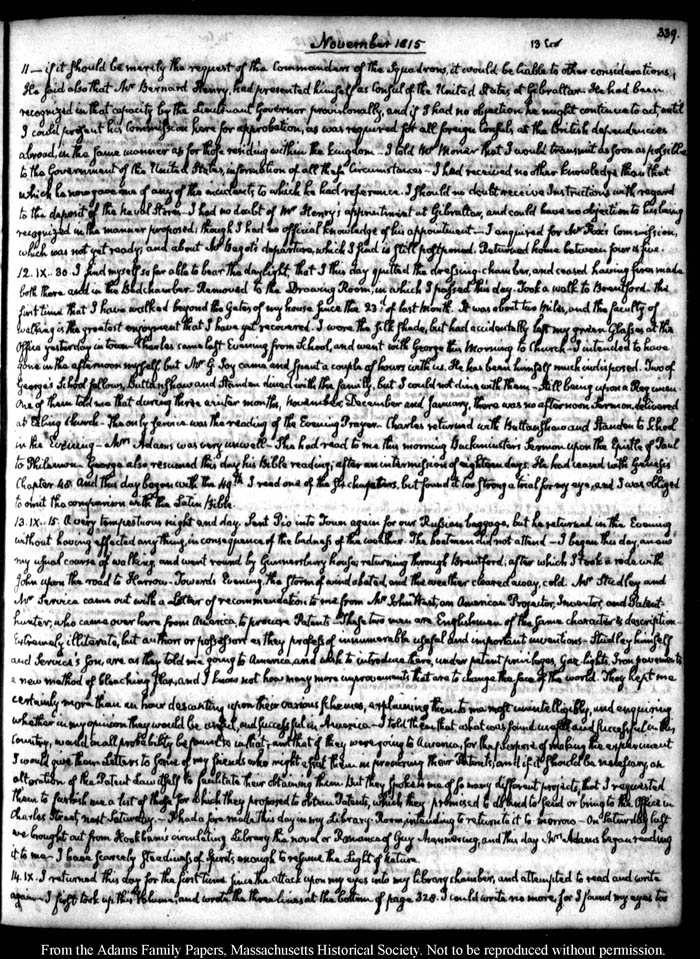 339.
November 1815
11 — if it should be merely the request of the Commanders of the Squadrons, it would be liable to other considerations,
He said also that Mr Bernard Henry, had presented himself as Consul of the United States, at Gibraltar. He had been
recognized in that capacity by the Lieutenant Governor provisionally, and if I had no objection he might continue to act, until
I could present his Commission here for approbation, as was required for all foreign Consuls, at the British dependencies
abroad, in the same manner as for those residing within the Kingdom — I told Mr Morier that I would transmit as soon as possible
to the Government of the United States, information of all these circumstances — I had received no other knowledge than that
which he now gave me of any of the incidents to which he had reference. I should no doubt receive Instructions with regard
to the deposit of the naval Stores — I had no doubt of Mr Henry's appointment at Gibraltar, and could have no objection to his being
recognized in the manner proposed; though I had no official knowledge of his appointment — I enquired for Mr Fox's Commission,
which was not yet ready; and about Mr Bagot's departure, which I find is still postponed. Returned home between four & five.
12. IX.. 30 I find myself so far able to bear the daylight, that I this day quitted the dressing-chamber, and ceased having fires made
both there and in the Bedchamber. Removed to the Drawing Room, in which I passed this day. Took a walk to Brentford. The
first time that I have walked beyond the Gates of my house since the 23d of last Month. It was about two Miles, and the faculty of
walking is the greatest enjoyment that I have yet recovered. I wore the silk shade, but had accidentally left my green Glasses at the
Office yesterday in town. Charles came last Evening from School, and went with George this Morning to Church — I intended to have
gone in the afternoon myself, but Mr G. Joy came and spent a couple of hours with us. He has been himself much indisposed. Two of
George's School fellows, Buttanshaw and Standen dined with the family, but I could not dine with them — still being upon a Regimen.
One of them told me that during these winter months, November, December and January, there was no afternoon Sermon delivered
at Ealing Church — The only service was the reading of the Evening Prayer. Charles returned with Buttanshaw and Standen to School
in the Evening — Mrs Adams was very unwell — She had read to me this morning Buckminster's Sermon upon the Epistle of Paul
to Philemon. George also resumed this day his Bible reading; after an intermission of eighteen days. He had ceased with Genesis
Chapter 48. And this day began with the 49th I read one of the chapters, but found it too strong a trial for my eye, and I was obliged
to omit the comparison with the Latin Bible.
13. IX.. 15. A very tempestuous night and day. Sent Pio into Town again for our Russian baggage, but he returned in the Evening
without having effected any thing, in consequence of the badness of the weather. The boatmen did not attend — I began this day anew
my usual course of walking, and went round by Gunnersbury house; returning through Brentford; after which I took a ride with
John upon the road to Harrow. Towards Evening, the storm of wind abated, and the weather cleared away, cold. Mr Studley and
Mr Service came out with a Letter of recommendation to me from Mr John West, an American Projector, Inventor, and Patent-
hunter, who came over here from America, to procure Patents — These two men are Englishmen of the same character & description
Extremely illiterate, but authors or possessors as they profess of innumerable useful and important inventions — Studley himself
and Service's son, are as they told me going to America, and wish to introduce there, under patent privileges, Gaz-lights, Iron pavements
a new method of bleaching flax, and I know not how many more improvements that are to change the face of the world. They kept me
certainly more than an hour descanting upon their various schemes, explaining them to me most unintelligibly, and enquiring
whether in my opinion they would be useful, and successful in America — I told them that what was found useful and successful in this
Country, would in all probability be found so in that; and that if they were going to America, for the purpose of making the experiment
I would give them Letters to some of my friends who might assist them in procuring their Patents, and if it should be necessary, an
alteration of the Patent Law itself to facilitate their obtaining them. But they spoke to me of so many different projects, that I requested
them to furnish me a list of those for which they proposed to obtain Patents, which they promised to do and to send or bring to the Office in
Charles Street, next Saturday. — I had a fire made this day in my Library Room, intending to return to it to morrow — On Saturday last
we brought out from Hookham's circulating Library the novel or Romance of Guy Mannering, and this day Mrs Adams began reading
it to me — I have scarcely steadiness of Spirits enough to resume the Light of Nature.
14. IX. I returned this day for the first time since the attack upon my eyes into my library chamber, and attempted to read and write
again — I first took up this Volume, and wrote the three lines at the bottom of page 328. I could write no more, for I found my eyes too
From the Adams Family Papers, Massachusetts Historical Society. Not to be reproduced without permission.